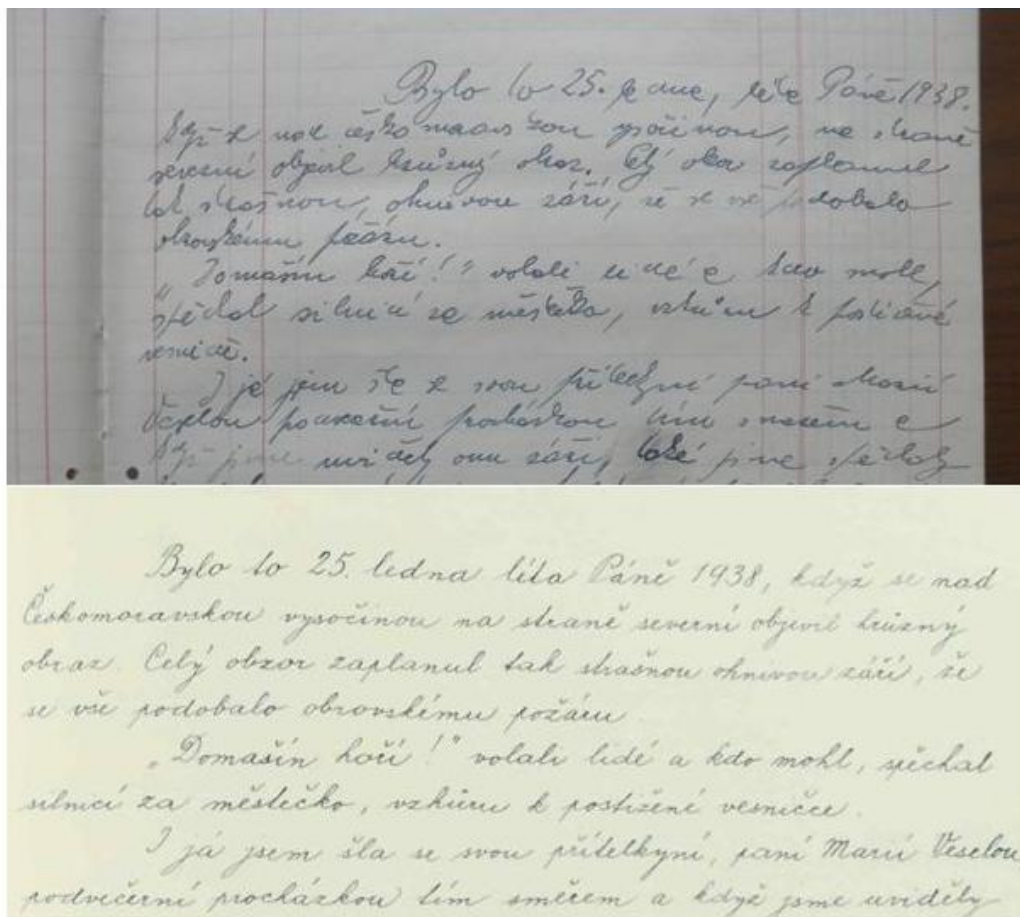 Bylo to 25. ledna, léta Páně 1938.
když se nad českomoravskou vysočinou, na straně
severní objevil hrůzný obraz. Celý obzor zaplanul
tak strašnou, ohnivou září, že se vše podobalo
obrovskému požáru.
„Domašín hoří!" volali lidé a kdo mohl,
spěchal silnicí za městečko, vzhůru k postižené
vesničce.
I já jsem šla se svou přítelkyní paní Marií
Veselou podvečerní procházkou tím směrem a
když jsme uviděly onu záři, také jsme spěchaly
Bylo to 25. ledna léta Páně 1938, když se nad
Českomoravskou vysočinou na straně severní objevil hrůzný
obraz. Celý obzor zaplanul tak strašnou ohnivou září, že
se vše podobalo obrovskému požáru
„Domašín hoří!" volali lidé a kdo mohl, spěchal
silnicí za městečko, vzhůru k postižené vesničce.
I já jsem šla se svou přítelkyní, paní Marií Veselou
podvečerní procházkou tím směrem a když jsme uviděly